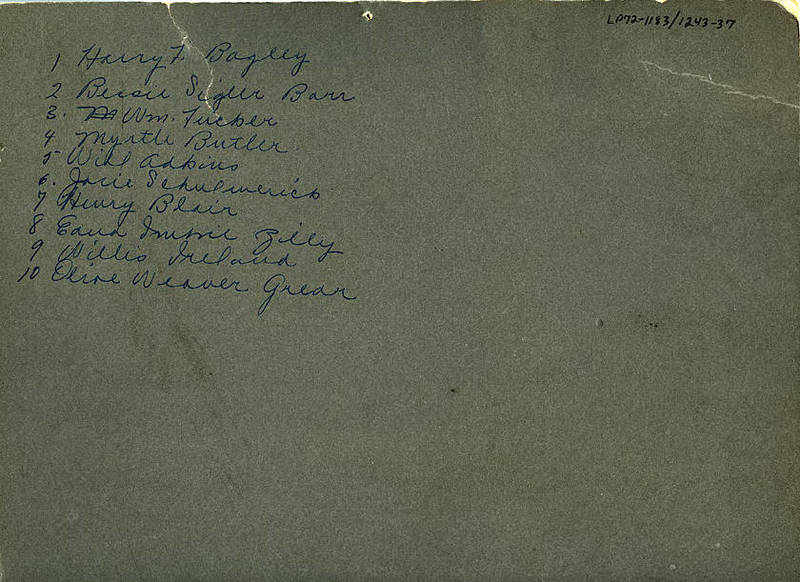 LP72-1183/1243-37
1 Harry F. Bagley
2 Bessie Sigler Barr
3. Wm. Tucker
4 Myrtle Butler
5 Will Adkins
6. Josie Schulmerich
7 Henry Blair
8 Zilly
9 Willis Ireland
10 Olive Weaver Grear